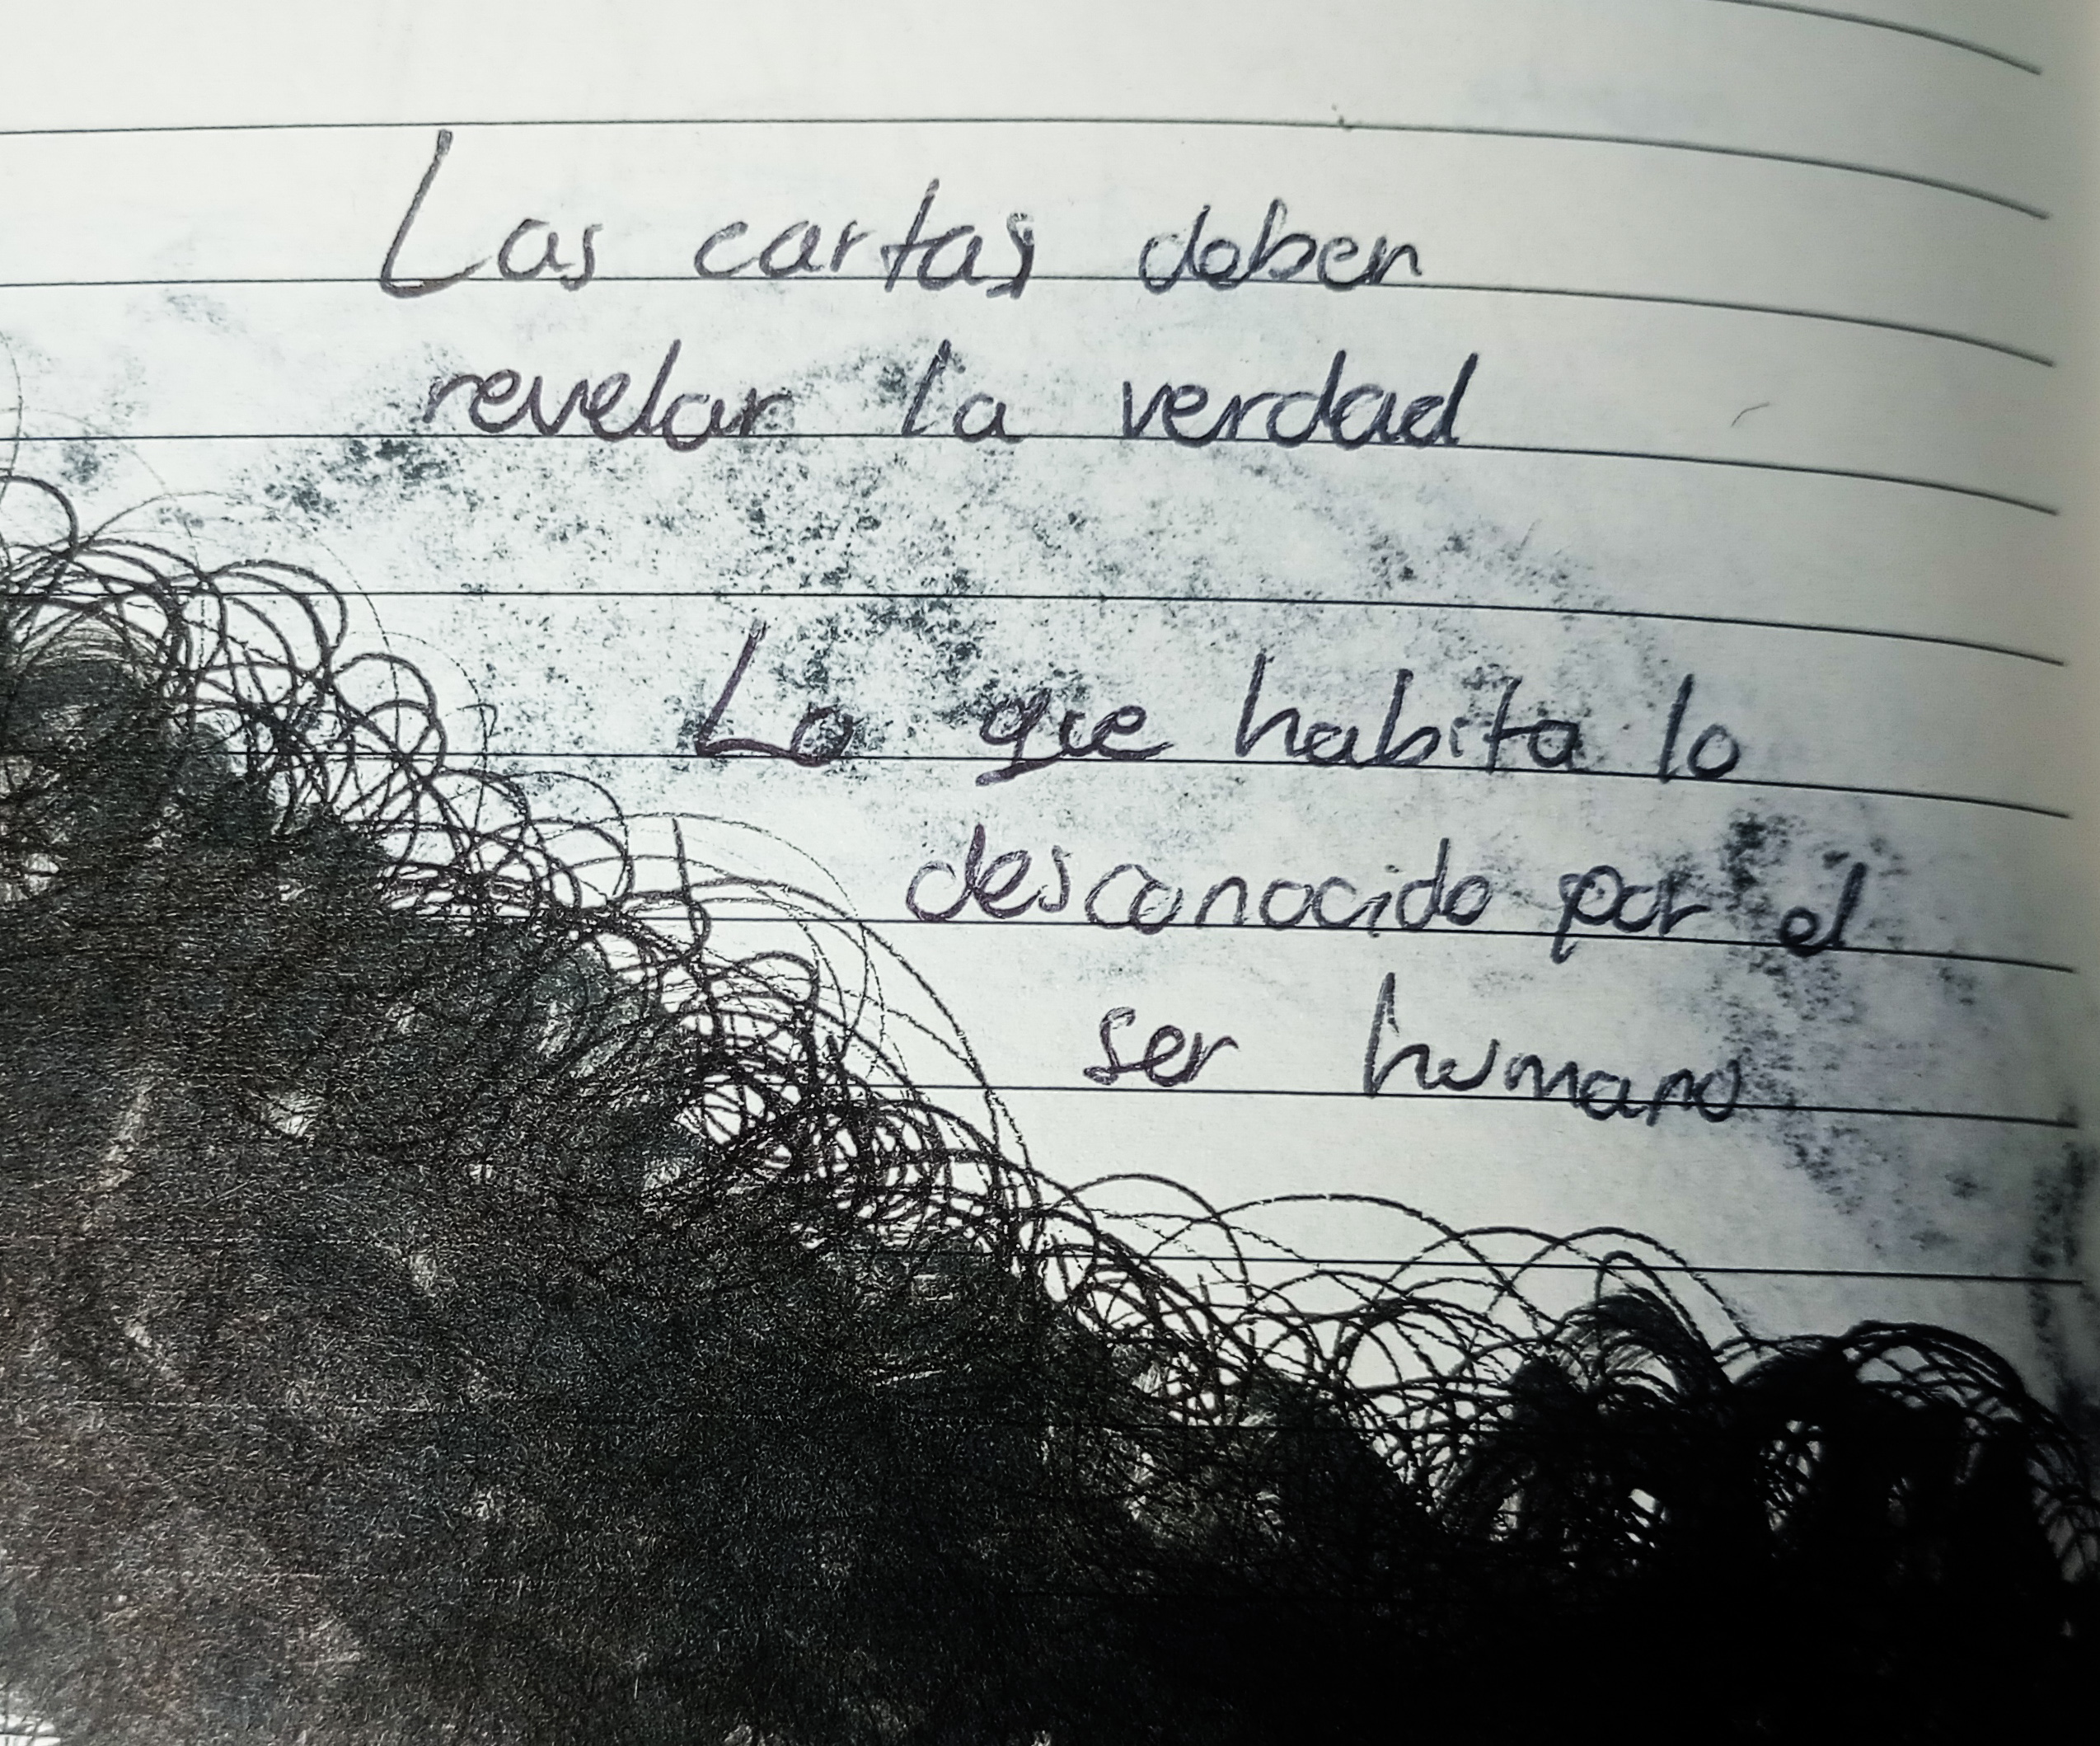 Las cartas deben
revelar la verdad
Lo que habita lo
desconocido por el
ser humano